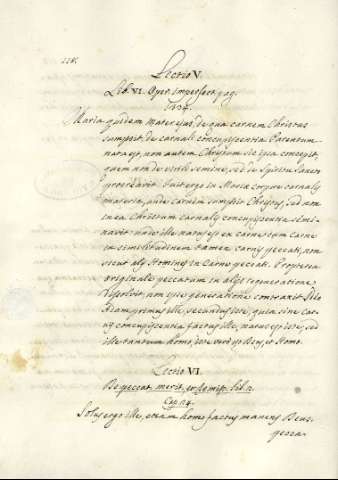 Lectio V.
Lib. VI. Oper. imperfect. pag.
Maria quidem Mater ejus, de qua carnem Christus
sumpsit, de carnali concupiscentia Parentum
nata est, non autem Christum sic ipsa concepit,
quem non de virili semine, sed de Spiritu Sancto
procreavit. Fuit ergo in Maria corpore carnalis
materia, unde carnem sumpsit Christus, sed non
in ea Christum carnalis concupiscentia semi-
navit unde ille natus est ex carne cum carne
in similitudinem tamen carnis peccati, non
sicut alij Homines in carne peccati. Propterea
originale peccatum in alijs regeneratione
dissolvit, non ipse generatione contraxit. Ideo
Adam primus ille, secundus iste, quia sine car-
nis concupiscentia factus ille, natus est iste, sed
ille tantum homo, iste vero et Deus, et Homo.
Lectio VI.
De peccat. merit. et remiss. lib. 2.
Cap. 24.
Solus ergo ille, etiam homo factus manens Deus
pecca-